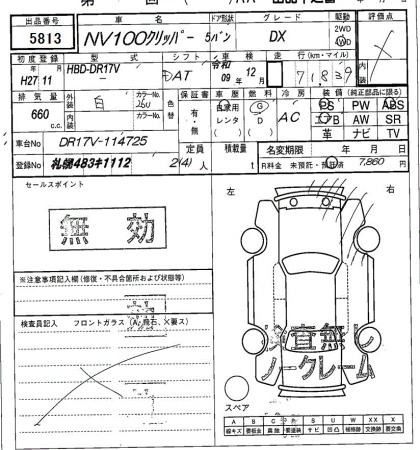 出品番号 車名 ドア形状 グレード 駆動 評価点
5813 NV100クリッパー 5バン DX 2WD 4WD
初度登録 型式 シフト 車検 走行(km・マイル) 内装
H27年11月 HBD-DR17V DAT 令和09年12月 71,839
排気量 外装 白 カラーNo. 26U 色替 保証書 車歴 燃料 冷房 装備 (純正部品に限る)
660 c.c. 内装 カラーNo. 有・無 自家用 レンタ G D AC PS PW ABS
エアB AW SR
革 ナビ TV
車台No DR17V-114725 定員 積載量 名変期限 年 月 日
登録No 札幌483キ1112 2(4)人 t R料金 未預託・預託済 7,860円
セールスポイント
無効
左 右
※注意事項記入欄(修復・不具合箇所および状態等)
検査員記入 フロントガラス (A,飛石,×要ス)
検査無し
ノークレーム
スペア
A S U W XX X
線キズ 要板金 腐蝕 要塗装 サビ 凹凸 補修跡 交換跡 要交換